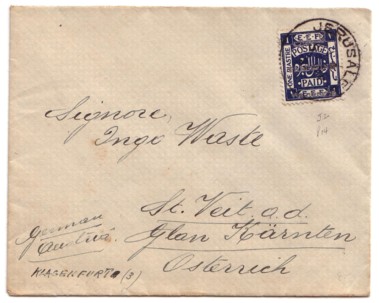 JERUSALE
E.E.F.
POSTAGE
ONE PIASTRE
PAID
Signore
Ingo Waste
St. Veit a.d.
Glan Kärnten
Österreich
German
Austria
KLAGENFURTO (3)